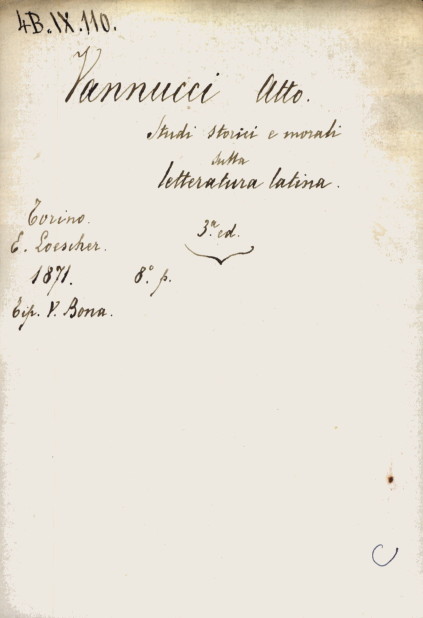 4B.IX.110.
Vannucci Atto.
Studi storici e morali
sulla
letteratura latina.
Torino.
3.ª ed.
E. Loescher.
1871. 8.º p.
Tip. V. Bona.
C